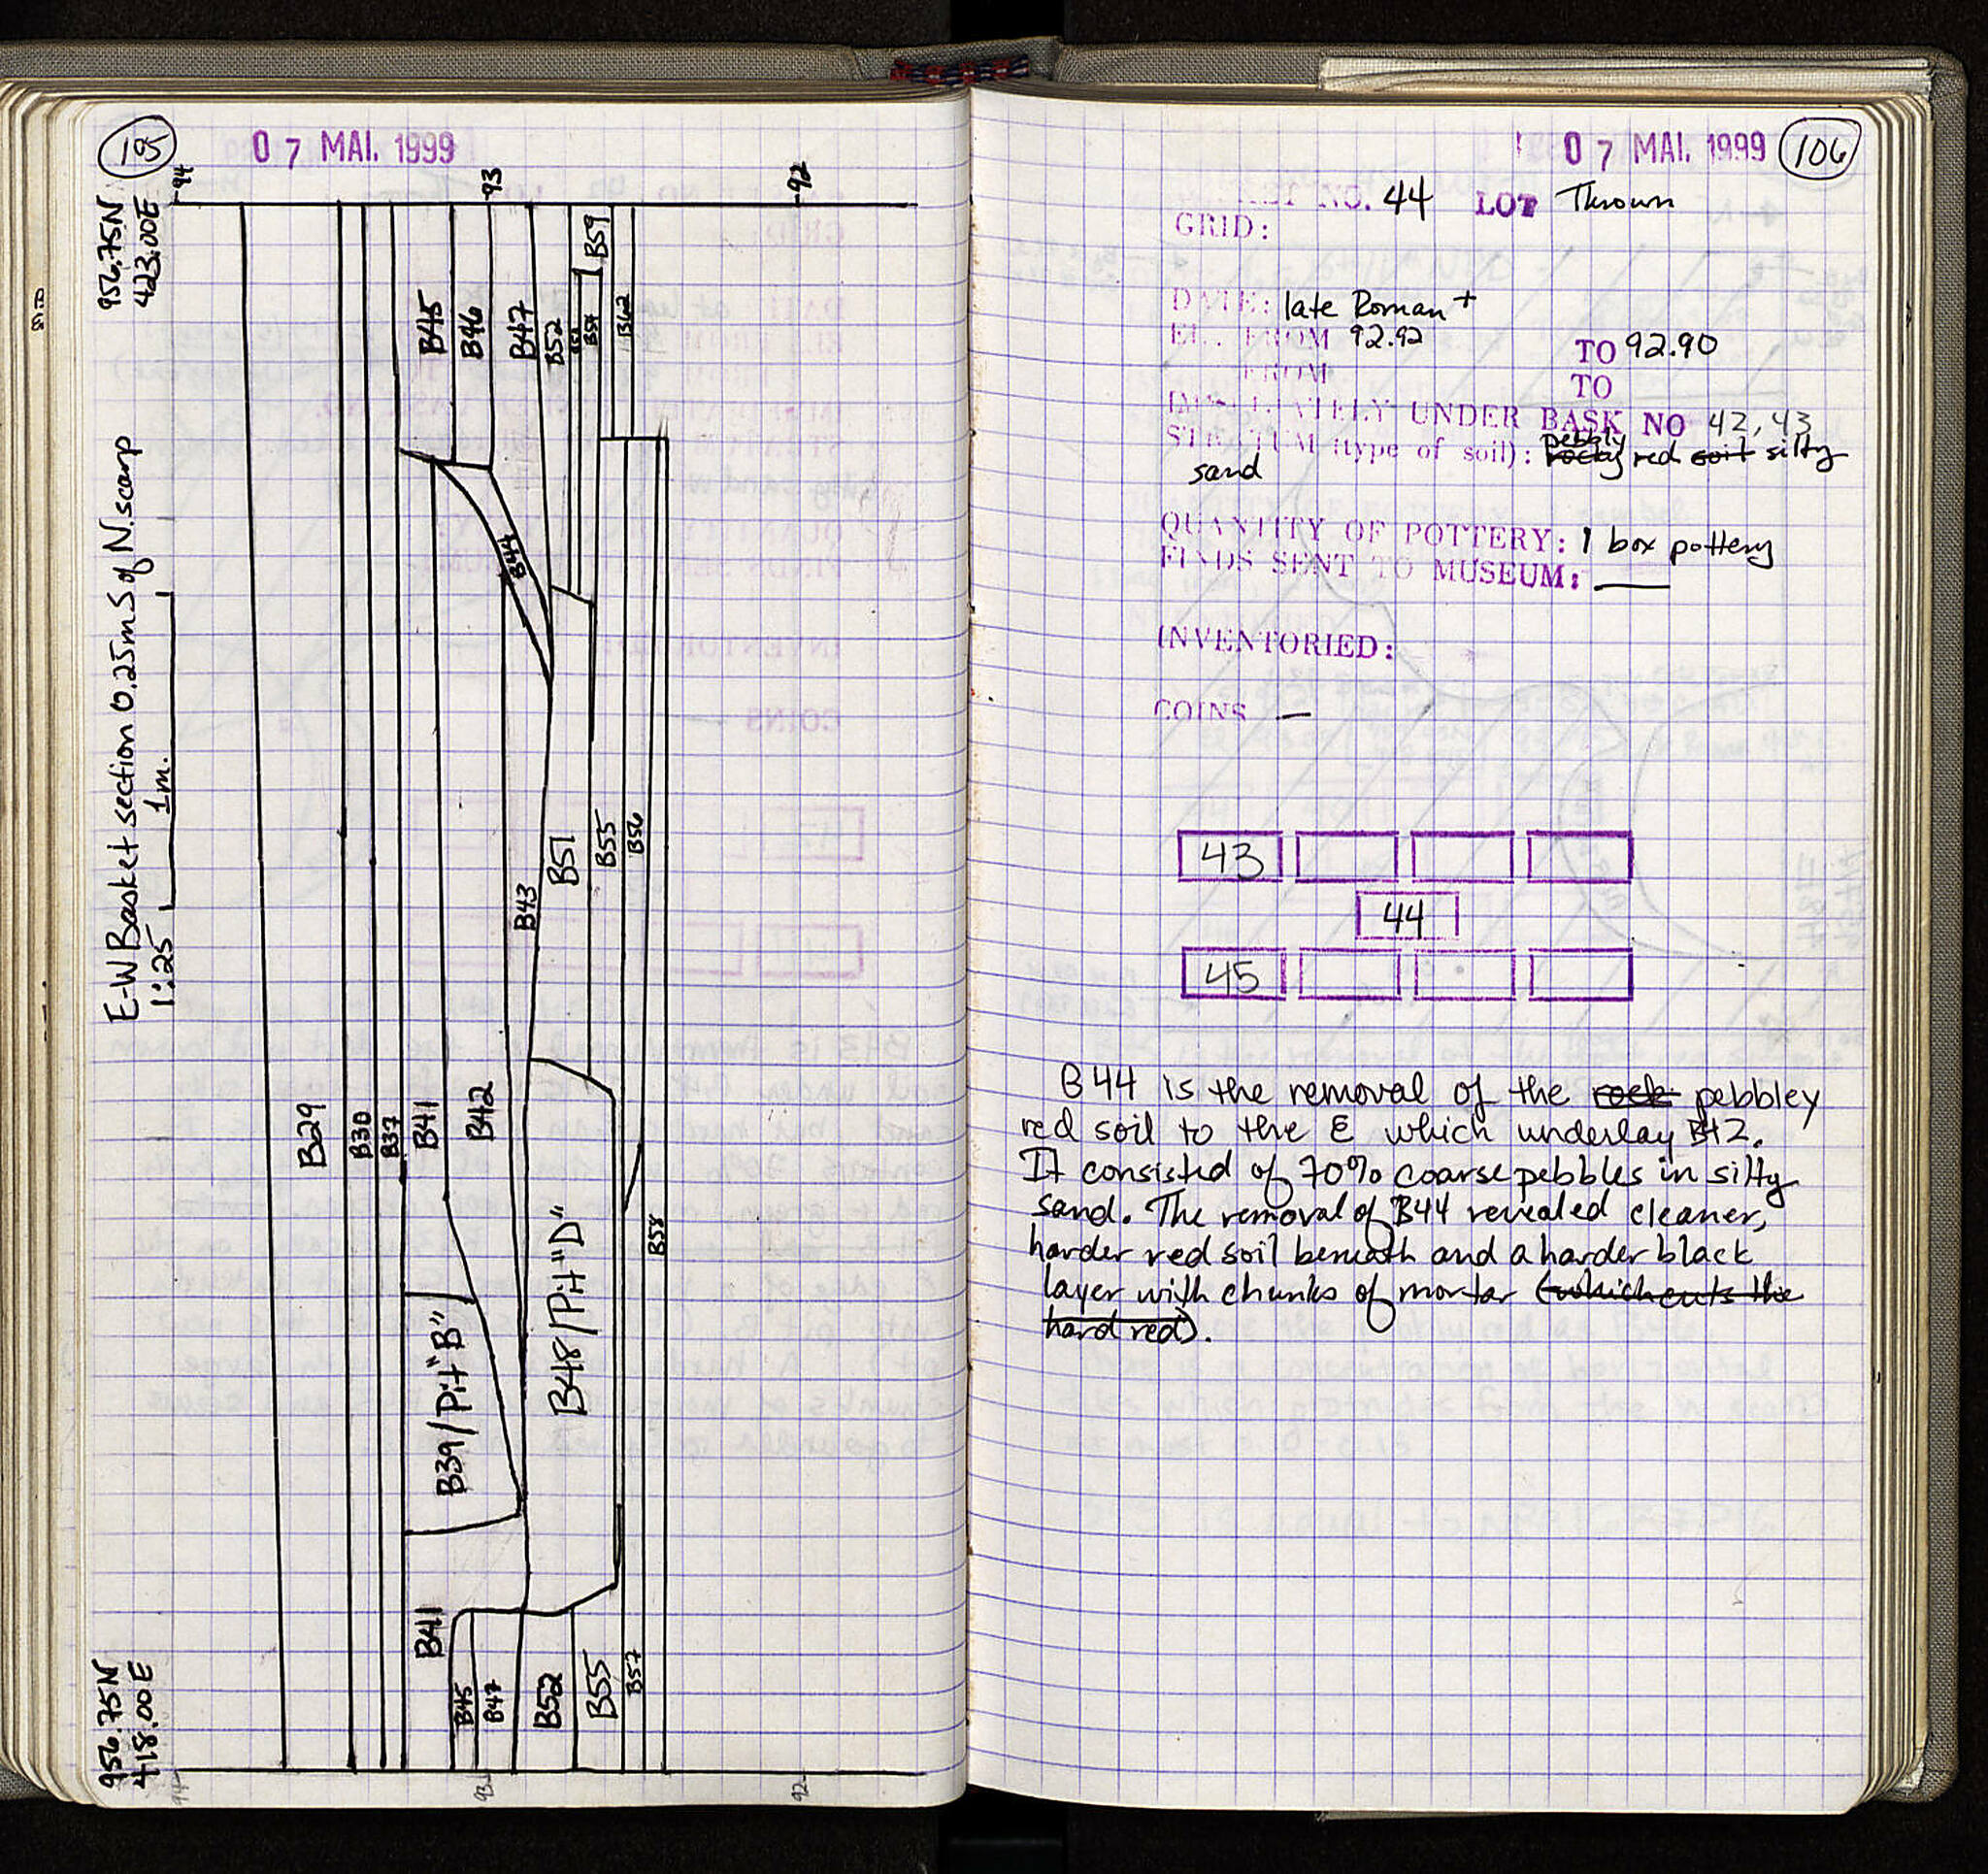 105
07 MAI. 1999
956.75N
423.00E
94
93
92
E-W Basket section 0.25m S of N. scarp
1:25
1m.
956.75N
418.00E
94
93
92
B29
B30
B37
B41
B42
B45
B46
B47
B52
B54
B59
B62
B44
B43
B51
B55
B56
B39/Pit "B"
B48/Pit "D"
B58
B41
B45
B47
B52
B55
B57
07 MAI. 1999 106
BASKET NO. 44 LOT Thrown
GRID:
DATE: late Roman +
EL. FROM 92.92 TO 92.90
FROM TO
IMMEDIATELY UNDER BASK NO 42, 43
STRATUM (type of soil): rocky pebbly red soil silty
sand
QUANTITY OF POTTERY: 1 box pottery
FINDS SENT TO MUSEUM: —
INVENTORIED:
COINS —
43
44
45
B44 is the removal of the rock pebbley
red soil to the E which underlay B42.
It consisted of 70% coarse pebbles in silty
sand. The removal of B44 revealed cleaner,
harder red soil beneath and a harder black
layer with chunks of mortar (which cuts the
hard red).